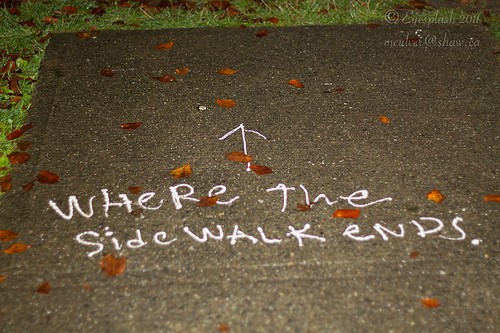 © Eyesplash 2011
mcalvet@shaw.ca
WHeRe The
SideWALK eNDS.